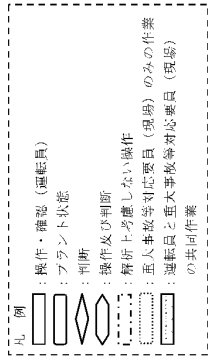 凡 例
：操作・確認（運転員）
：プラント状態
：判断
：操作及び判断
：解析上考慮しない操作
：重大事故等対応要員（現場）のみの作業
：運転員と重大事故等対応要員（現場）
の共同作業